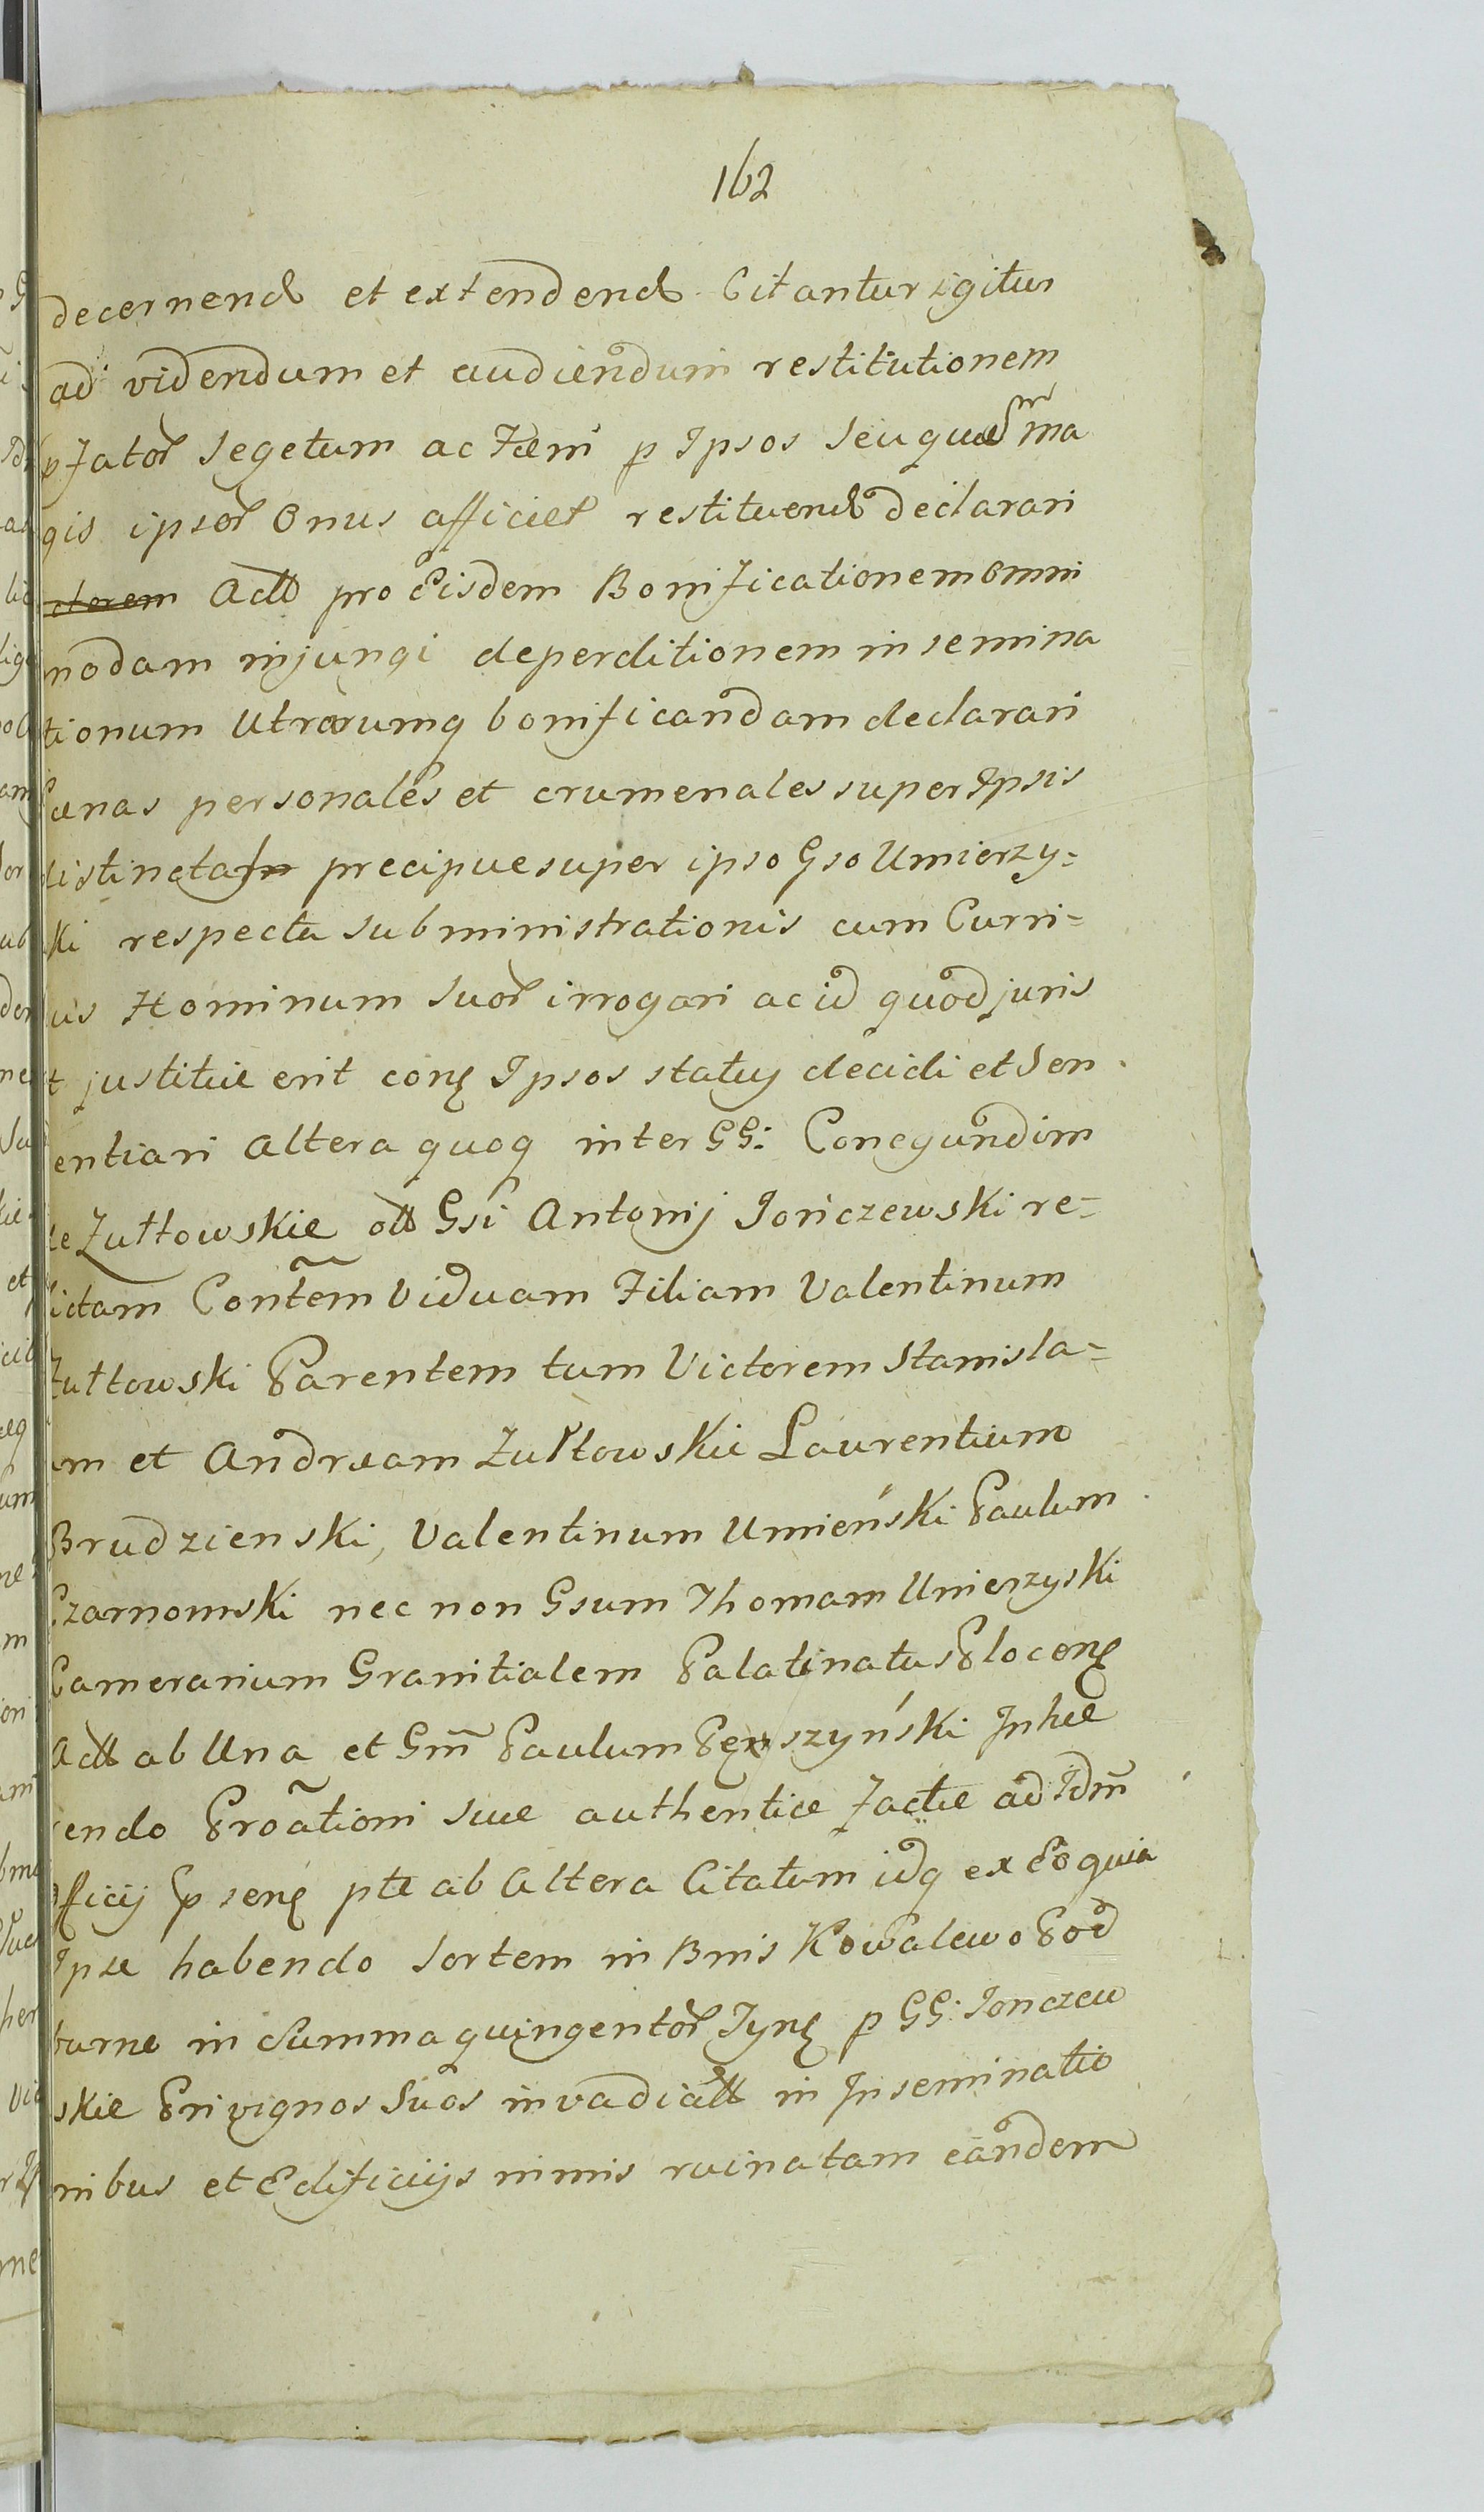 162
decernend et extendend Citantur igitur
ad videndum et audiendum restitutionem
pfator Segetum ac Fæni p Ipsos seu quem ma
gis ipsor Onus afficiet restituend declarari
Actt pro Eisdem Bonificationem omni
modam injungi deperditionem in semina
tionum Utrorumq bonificandam declarari
Pœnas personales et crumenales super Ipsis
distincta precipue super ipso Gso Umierzy=
ki respectu subministrationis cum Curri=
us Hominum Suor irrogari ac id quod juris
t justitiæ erit conq Ipsos statuj decidi et Sen
entiari Altera quoq inter GG: Conegundim
de Zułtowskie ott Gsi Antonij Jończewski re=
lictam Contem Viduam Filiam Valentinum
Zułtowski Parentem tum Victorem Stanisla=
um et Andream Zułtowskie Laurentium
Brudzienski, Valentinum Umieński Paulum
Czarnomski nec non Gsum Thomam Umierzyski
Camerarium Granitialem Palatinatus Plocenq
Actt ab Una et Gm Paulum szyński Inhæ
rendo Proãtioni suæ authenticæ factæ ad Idm
Officij psenq pte ab Altera Citatum idq ex Eo quia
Ipse habendo Sortem in Bnis Kowalewo Pod
burne in Summa quingentor Tynq p GG: Jonczew
skie Privignos Suos invadiatt in Inseminatio
nibus et Edificijs nimis ruinatam eandem